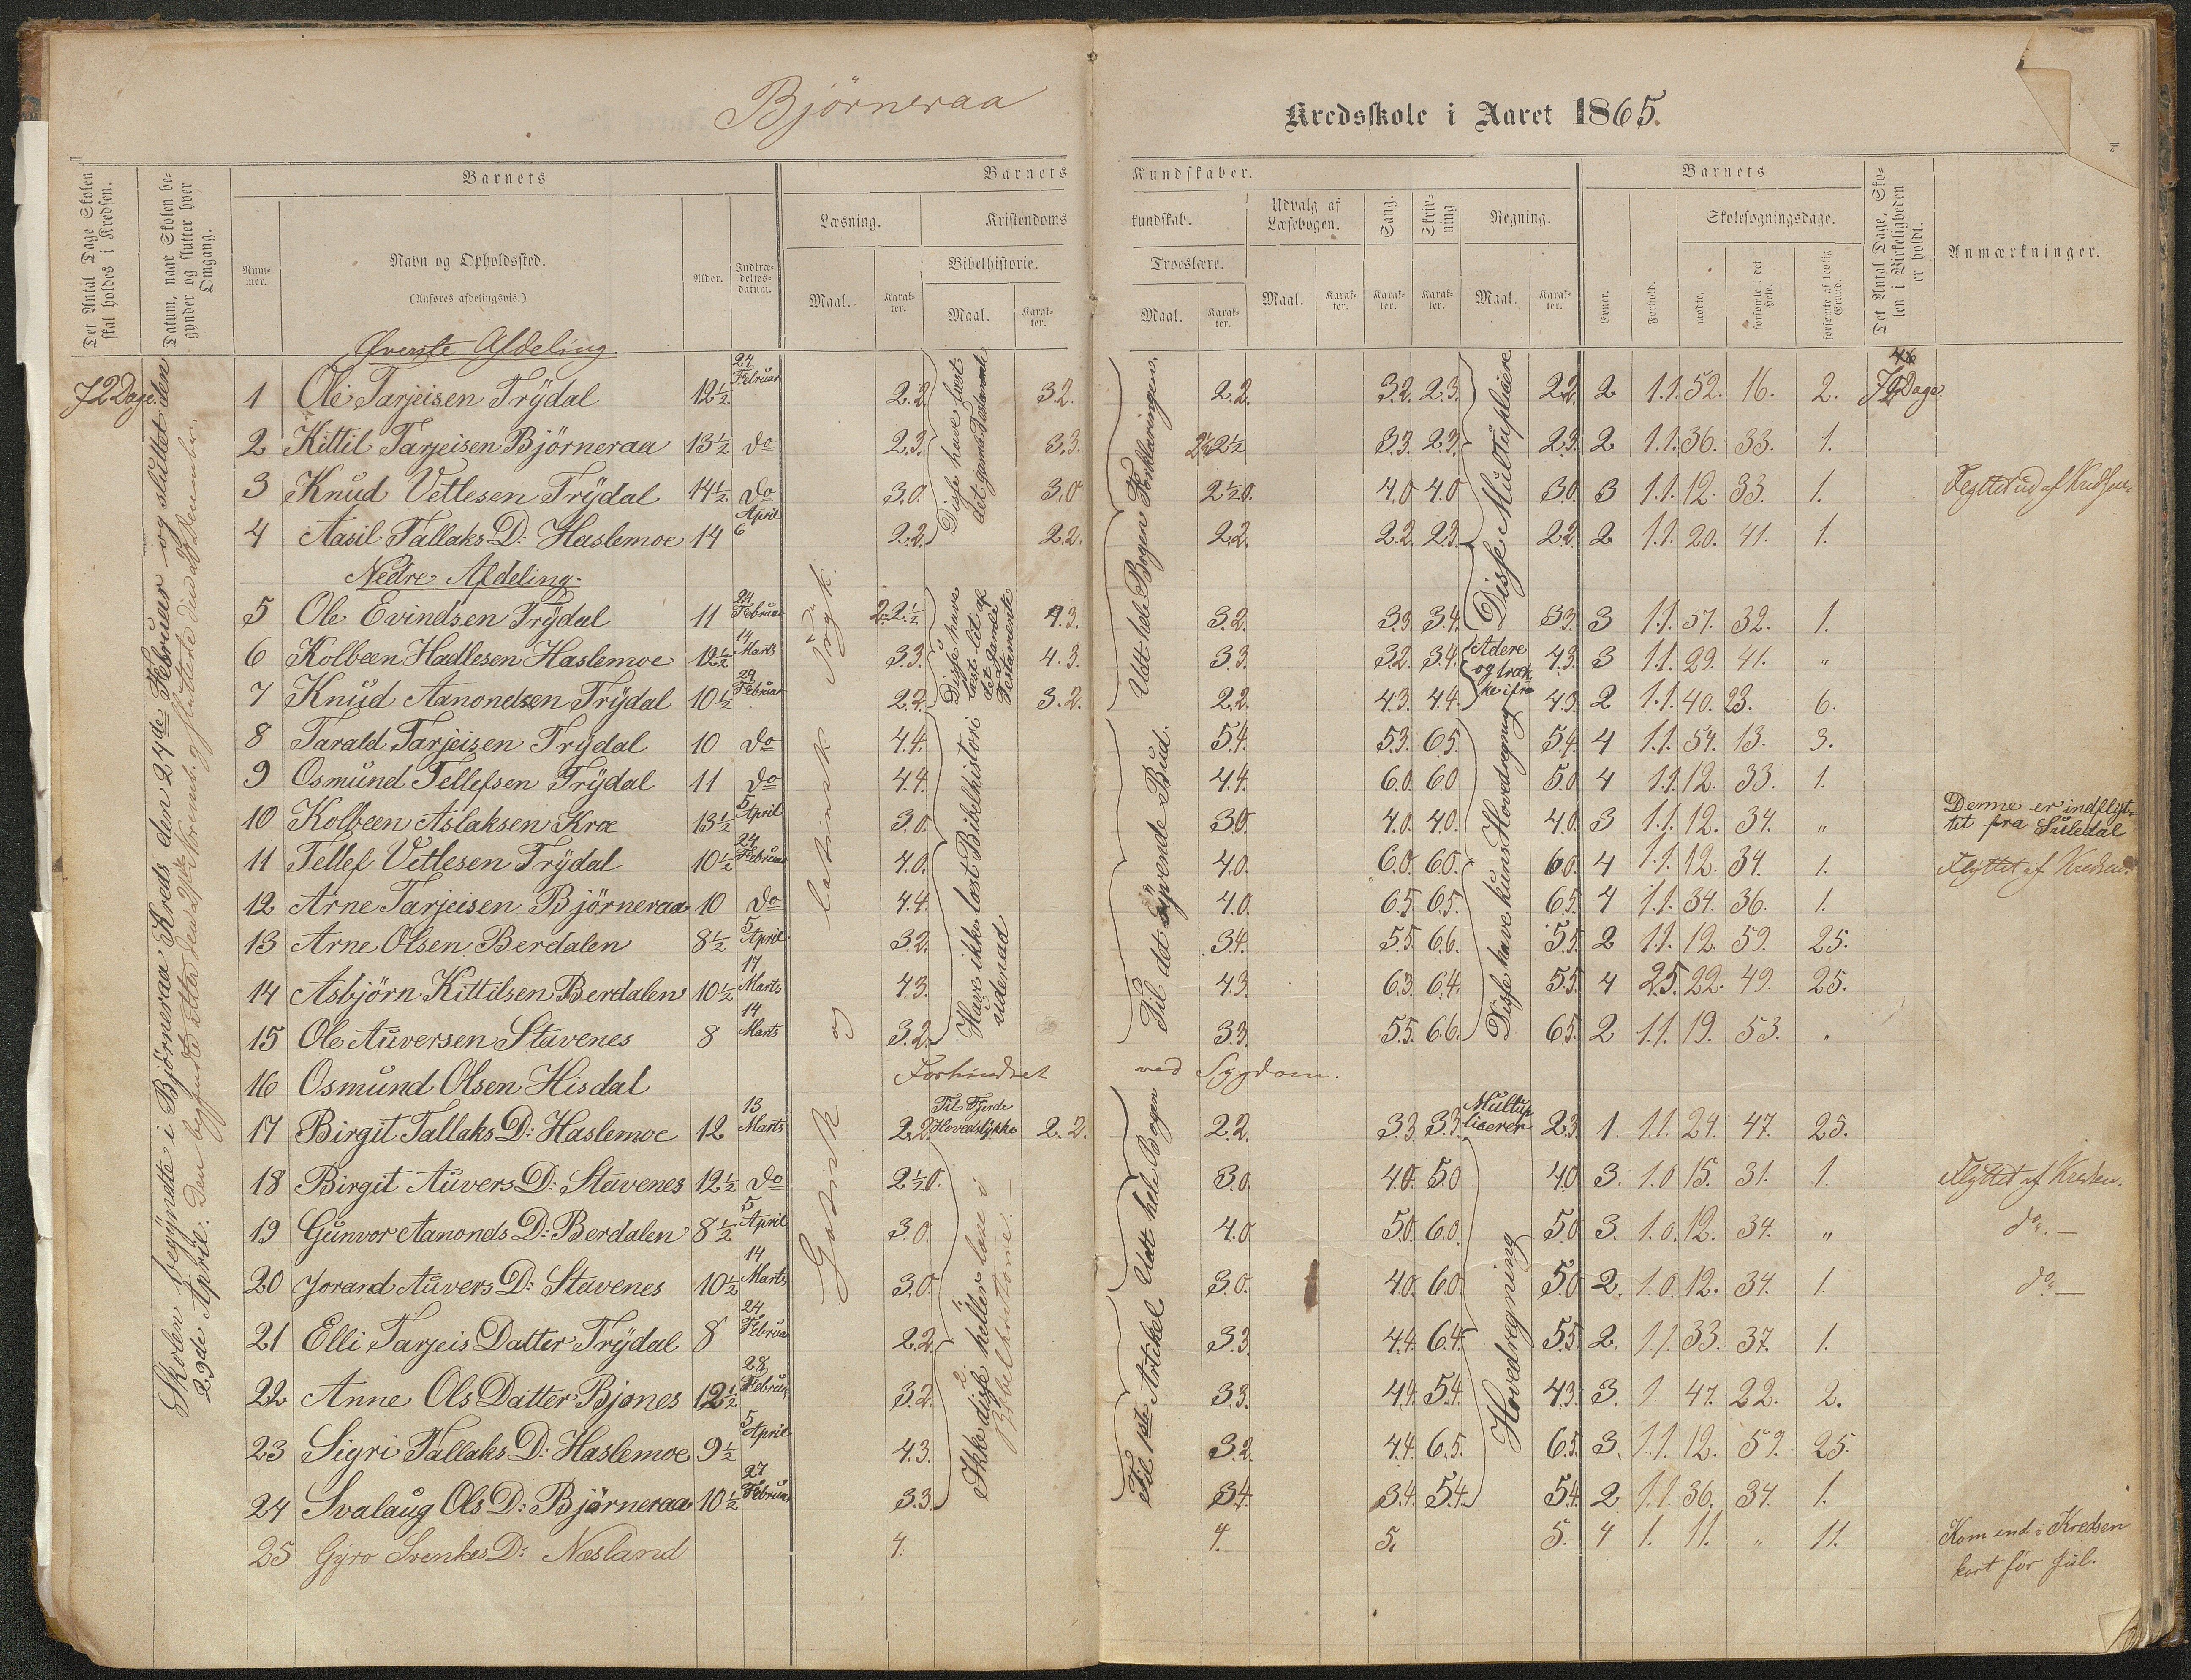 Björneraa
Kredsskole i Aaret 1865.
Det Antal Dage Skolen skal holdes i Kredsen.
Datum, naar Skolen begynder og slutter hver Omgang.
Barnets
Barnets Kundskaber.
Barnets
Det Antal Dage, Skolen i Virkeligheden er holdt.
Anmærkninger.
Nummer.
Navn og Opholdssted.
(Anføres afdelingsvis.)
Alder.
Indtrædelses-datum.
Læsning.
Kristendomskundskab.
Bibelhistorie.
Troeslære.
Udvalg af Læsebogen.
Sang.
Skrivning
Regning.
Evner.
Forhold.
Skolesøgningsdage.
mødte.
forsømte i det Hele.
forsømte af lovlig Grund.
Maal. Karakter. Maal. Karakter. Maal. Karakter. Maal. Karakter. Karakter. Karakter. Maal. Karakter.
72 Dage.
Skolen begyndte i Björneraa Kreds den 24de Februar og sluttet den 29de April.
Øverste Afdeling
1 Ole Tarjeisen Trydal 12½ 24 Februar 2.2. 3.2. 2.2. 3.2. 2.3. 2.2. 2 1.1. 52. 16. 2. Dage.
2 Kittil Tarjeisen Björneraa 13½ do 2.3. 3.3. 3.3. 2.3. 2.3. 2 1.1. 36. 33. 1.
3 Knud Vetlesen Trydal 14½ do 3.0. 3.0 2½0. 4.0 4.0 3.0 3 1.1. 12. 33. 1. Flyttet ud af Kredsen
4 Aasil Tallaks D: Haslemoe 14 6 April 2.2. 2.2. 2.2. 2.2. 2.3. 2.2. 2 1.1. 20. 41. 1.
Nedre Afdeling.
5 Ole Evindsen Trydal 11 24 Februar 2.2½ 4.3. 3.2. 3.3. 3.4. 3.3. 3 1.1. 37. 32. 1.
6 Kolbeen Hadlesen Haslemoe 12½ 14 Marts 3.3. 4.3. 3.3. 3.2. 3.4. 4.3. 3 1.1. 29. 41. "
7 Knud Aanondsen Trydal 10½ 24 Februar 2.2. 3.2. 2.2. 4.3. 4.4. 4.3. 2 1.1. 40. 23. 6.
8 Tarald Tarjeisen Trydal 10 do 4.4. 5.4. 5.3. 6.5. 5.4. 4 1.1. 54. 13. 3.
9 Osmund Tellefsen Trydal 11 do 4.4. 4.4. 6.0. 6.0 5.0 4 1.1. 12. 33. 1.
10 Kolbeen Aslaksen Kra 13½ 5 April 3.0. 3.0. 4.0. 4.0. 4.0. 3 1.1. 12. 34. " Denne er indflyttet fra Suledal
11 Tellef Vetlesen Trydal 10½ 24 Februar 4.0. 4.0. 6.0. 6.0. 6.0. 4 1.1. 12. 34. 1. Flyttet af Kredsen.
12 Arne Tarjeisen Björneraa 10 do 4.4. 4.0. 6.5. 6.5. 6.5. 4 1.1. 34. 36. 1.
13 Arne Olsen Berdalen 8½ 5 April 3.2. 3.4. 5.5. 6.6. 5.5. 2 1.1. 12. 59. 25.
14 Asbjörn Kittilsen Berdalen 10½ 17 Marts 4.3. 4.3. 6.3. 6.4. 5.5. 4 2.5. 22. 49. 25.
15 Ole Auversen Stavenes 8 14 Marts 3.2. 3.3. 5.5. 6.6. 6.5. 2 1.1. 19. 53.
16 Osmund Olsen Hisdal Forhindret ved Sygdom.
17 Birgit Tallaks D: Haslemoe 12 13 Marts 2.2. Til Fjerde Hovedstykke 2.2. 2.2. 3.3. 3.3. Multiplicerer 2.3. 1. 1.1. 24. 47. 25.
18 Birgit Auvers D: Stavenes 12½ do 2½0. 3.0. 4.0. 5.0 4.0 3. 1.0 15. 31. 1. Flyttet af Kredsen.
19 Gunvor Aanonds D: Berdalen 8½ 5 April 3.0. 4.0. 5.0. 6.0. 5.0 3. 1.0. 12. 34. " do. —
20 Jorand Auvers D: Stavenes 10½ 14 Marts 3.0. 3.0. 4.0. 6.0. 5.0 2. 1.0. 12. 34. 1. do —
21 Elli Tarjeis Datter Trydal 8 24 Februar 2.2. 3.3. 4.4. 6.4. 5.5. 2. 1.1. 33. 37. 1.
22 Anne Ols Datter Bjones 12½ 28 Februar 3.2. 3.3. 4.4. 5.4. 4.3. 3. 1. 47. 22. 2.
23 Sigri Tallaks D: Haslemoe 9½ 5 April 4.3. 3.2. 4.4. 6.5. 6.5. 3. 1.1. 12. 59. 25.
24 Svalaug Ols D: Björneraa 10½ 27 Februar 3.3. 3.4. 3.4. 5.4. 5.4. 2 1.1. 36. 34. 1.
25 Gyro Svenkes D: Næsland 4. 4. 5. 5. 4 1. 11. " 11. Kom ind i Kredsen kort før Jul.
Gotisk og latinsk Tryk.
Disse have læst det gamle Testamente
Disse have læst lit af det gamle Testamente
Have ikke læst Bibelhistori udenad
Ikke disse heller læse i Bibelhistorie. —
Udt hele Bogen Forklaringen.
Til det syvende Bud.
Udt hele Bogen
Til 1ste Artikel
Disse Multiplicere
Adere og trække ifra
Disse have kuns Hovedregning
Hovedregning